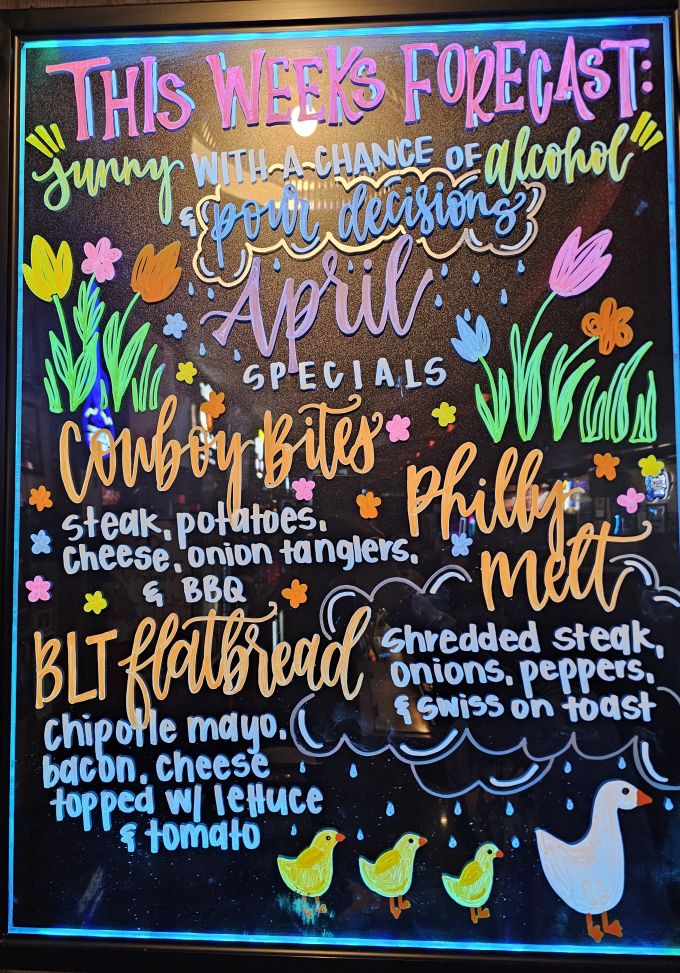 THIS WEEKS FORECAST:
sunny WITH A CHANCE OF alcohol
& pour decisions
April
SPECIALS
Cowboy Bites
steak, potatoes,
cheese, onion tanglers,
& BBQ
Philly
Melt
shredded steak,
onions, peppers,
& swiss on toast
BLT flatbread
Chipotle mayo,
bacon, cheese
topped w/ lettuce
& tomato